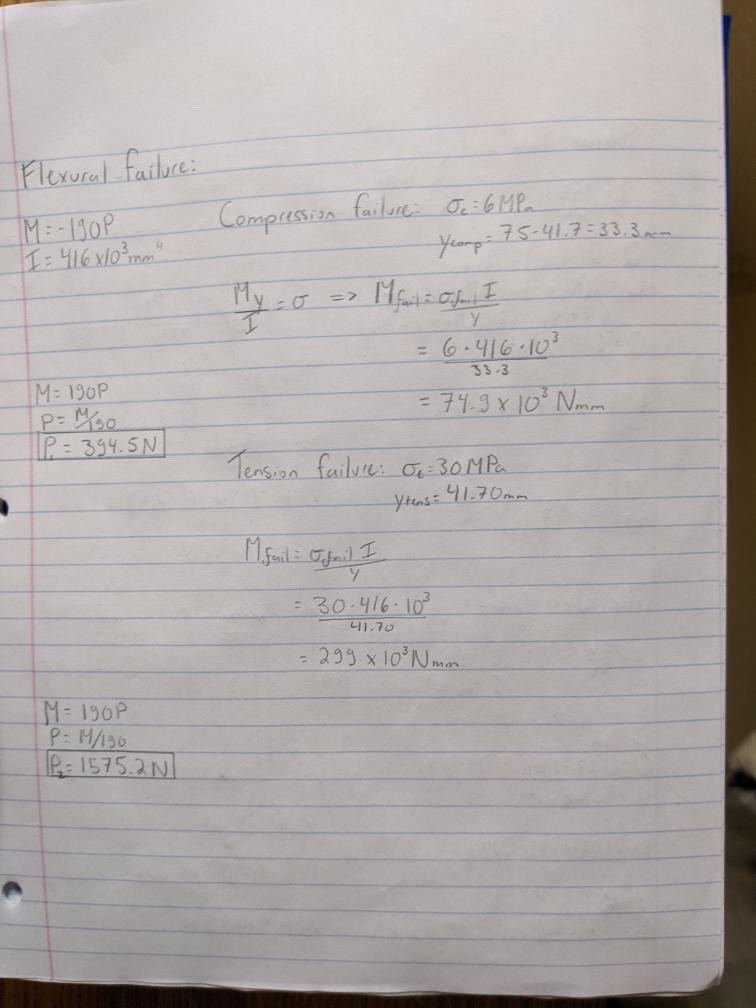 Flexural failure:
M = -190P
I = 416 x 10³ mm⁴
Compression failure: σc = 6 MPa
ycomp = 75 - 41.7 = 33.3 mm
My/I = σ => Mfail = σfail I / y
= 6 · 416 · 10³ / 33.3
= 74.9 x 10³ Nmm
M = 190P
P = M/190
P₁ = 394.5 N
Tension failure: σt = 30 MPa
ytens = 41.70 mm
Mfail = σfail I / y
= 30 · 416 · 10³ / 41.70
= 299 x 10³ Nmm
M = 190P
P = M/190
P₂ = 1575.2 N